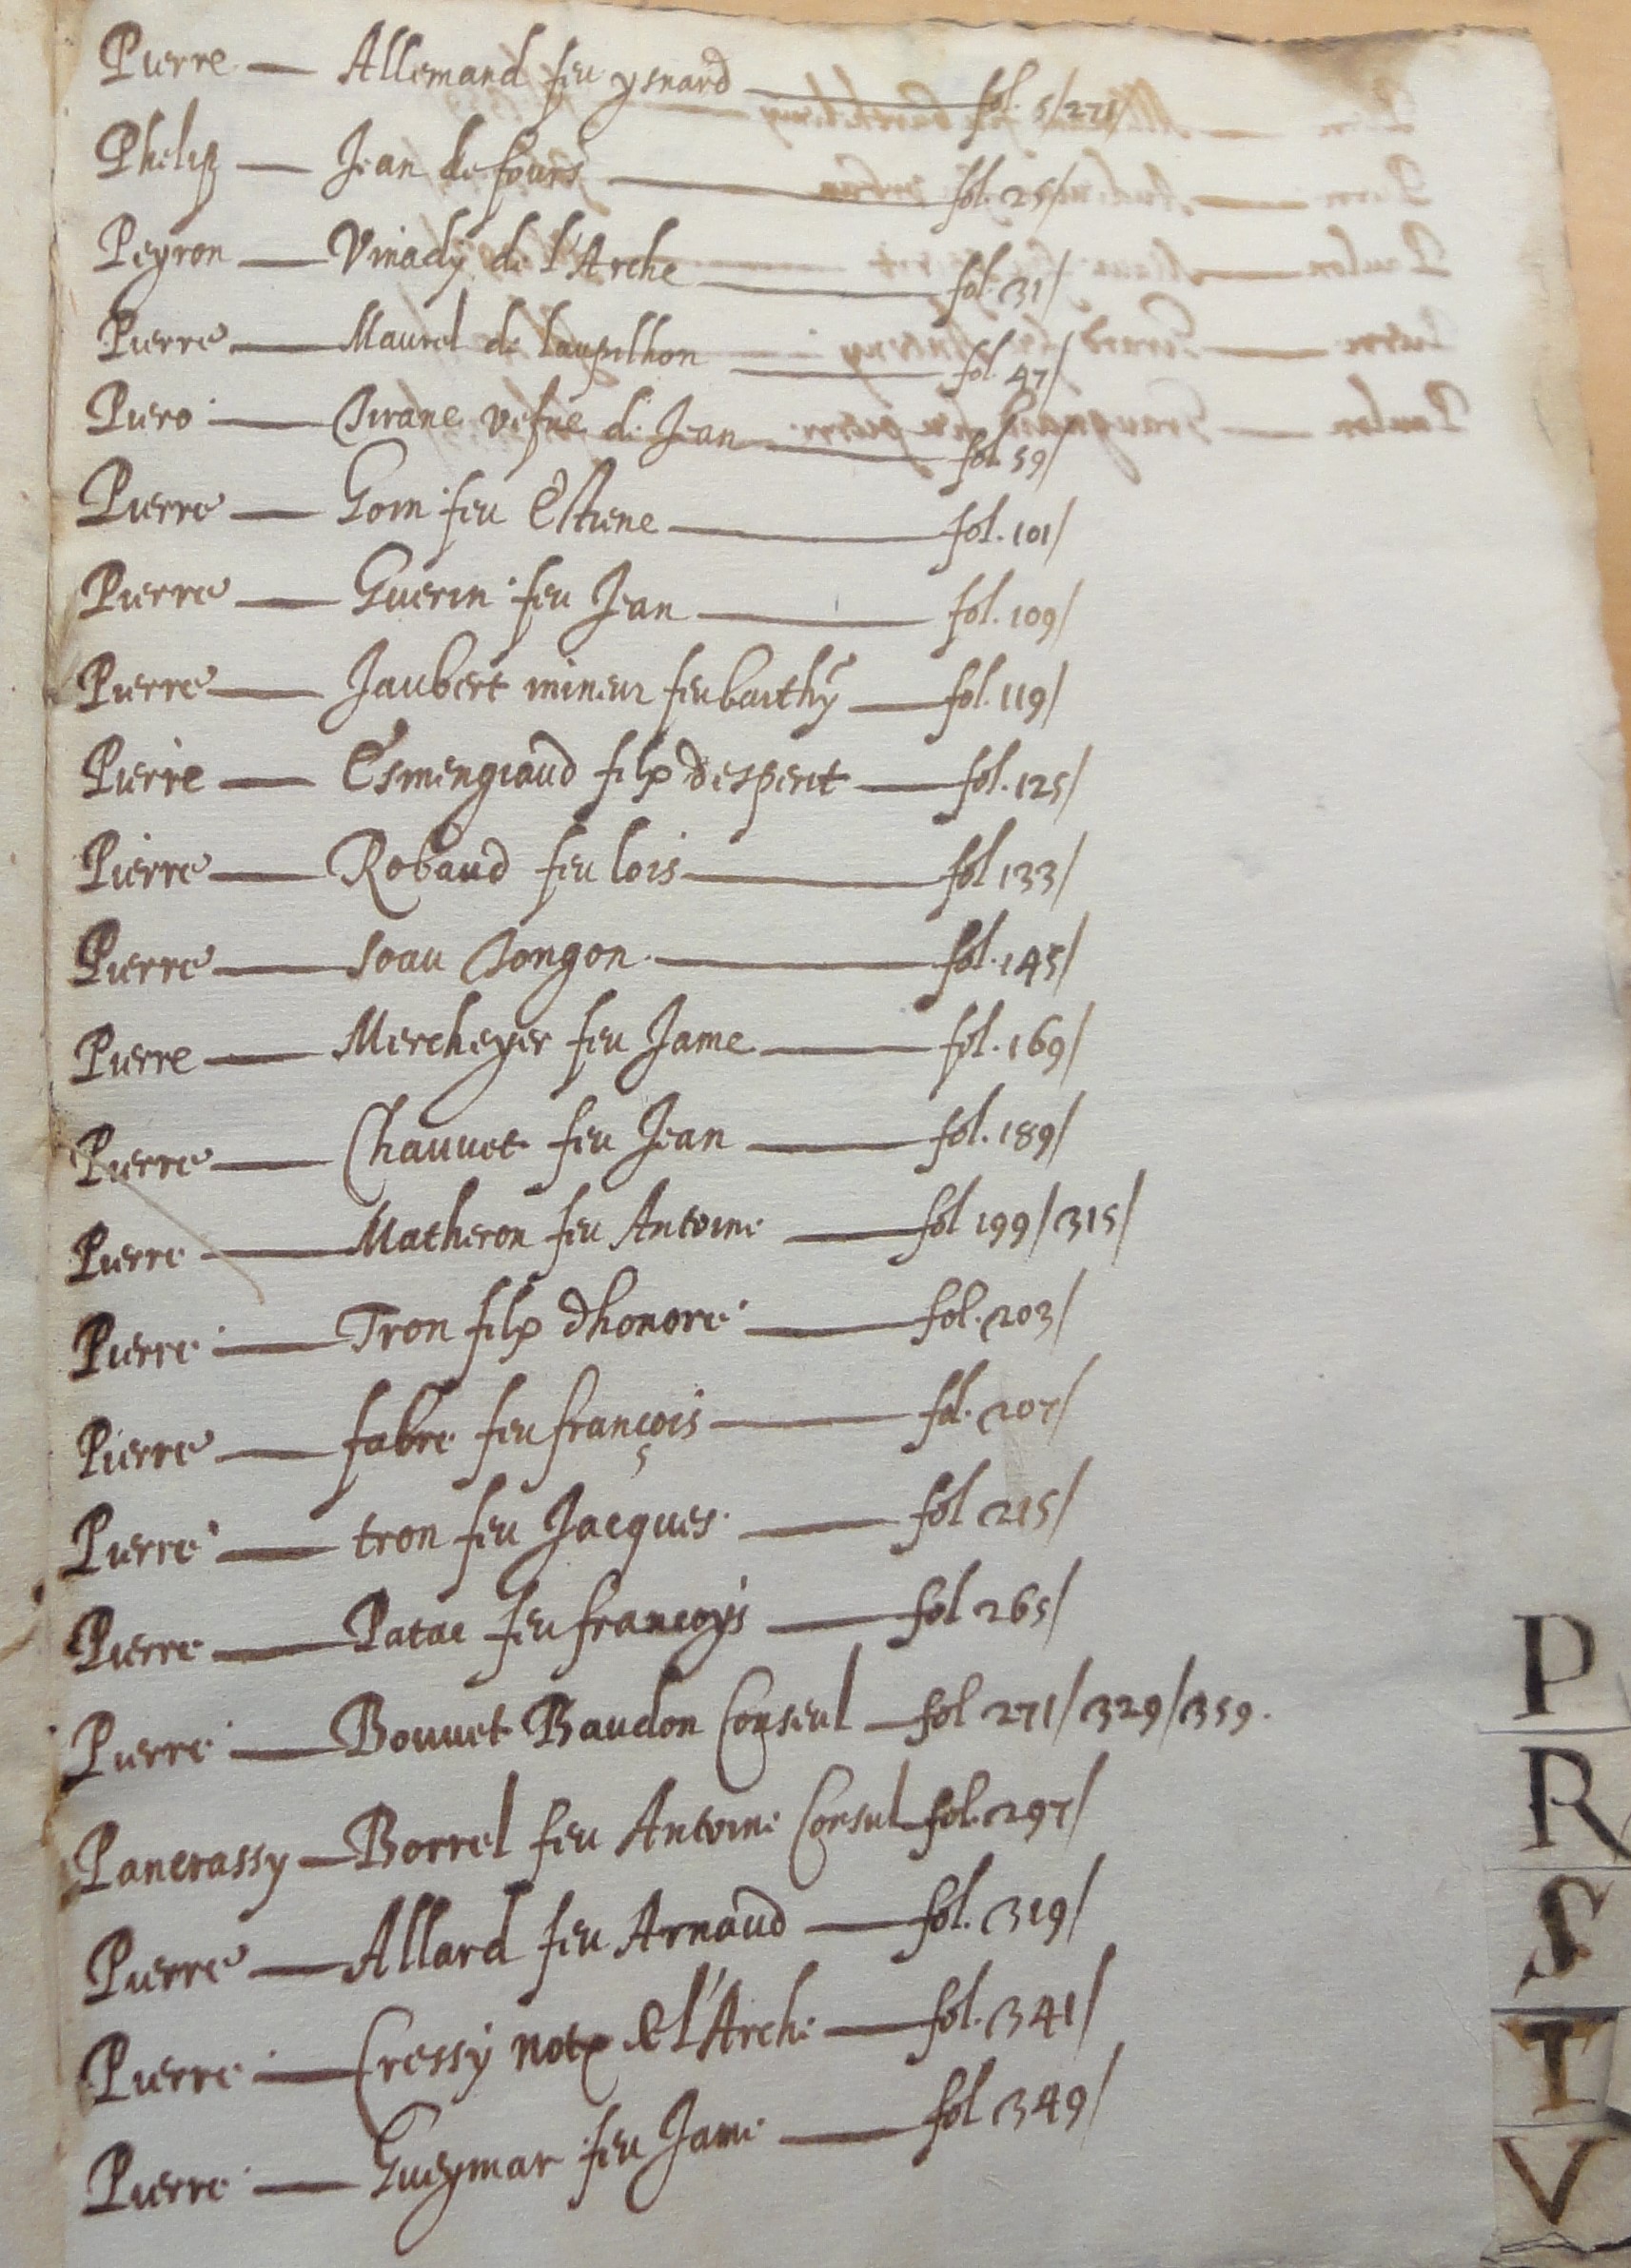 Pierre — Allemand feu ysnard — fol. 5/271/
Phelip — Jean de fours — fol. 25/
Peyron — Vinady de l'Arche — fol. 31/
Pierre — Maurel de laupilhon — fol. 47/
Piero — Sirane vefue de Jean — fol. 59/
Pierre — Goin feu Estiene — fol. 101/
Pierre — Guerin feu Jean — fol. 109/
Pierre — Jaubert mineur feu barthy — fol. 119/
Pierre — Esmengiaud filz desperit — fol. 125/
Pierre — Robaud feu lois — fol 133/
Pierre — Songon — fol. 145/
Pierre — Mercheyer feu Jame — fol. 169/
Pierre — Chauvet feu Jean — fol. 189/
Pierre — Matheron feu Antoine — fol 199/315/
Pierre — Tron filz dhonore — fol. 203/
Pierre — fabre feu françois — fol. 207/
Pierre — tron feu Jacques — fol 215/
Pierre — Patac feu francoys — fol 265/
Pierre — Bouuet Baudon Conseul — fol 271/329/359.
Pancrassy — Borrel feu Antoine Consul fol. 297/
Pierre — Allard feu Arnaud — fol. 319/
Pierre — Cressy not de l'Arche — fol. 341/
Pierre — Gueymar feu Jame — fol 349/
P
R
S
T
V